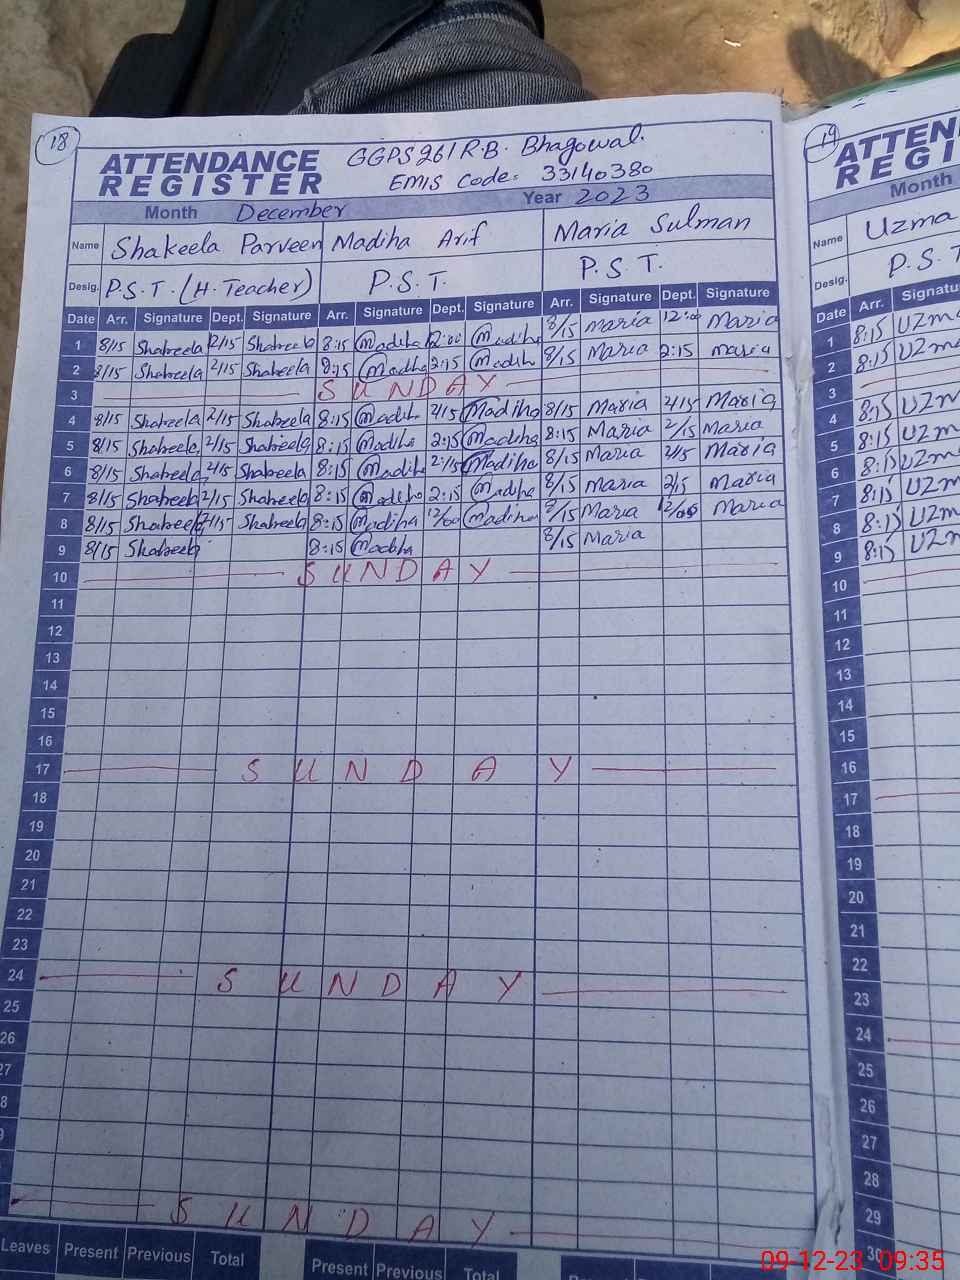 18
ATTENDANCE REGISTER
GGPS 261 R.B. Bhagowal.
EMIS Code: 33140380
Month December Year 2023
Name Shakeela Parveen Madiha Arif Maria Sulman
Desig. P.S.T. (H. Teacher) P.S.T. P.S.T.
Date Arr. Signature Dept. Signature Arr. Signature Dept. Signature Arr. Signature Dept. Signature
1 8/15 Shakeela 12/15 Shakeela 8:15 Madiha 12:00 Madiha 8/15 Maria 12:00 Maria
2 8/15 Shakeela 2/15 Shakeela 8:15 Madiha 2:15 Madiha 8/15 Maria 2:15 Maria
3 SUNDAY
4 8/15 Shakeela 2/15 Shakeela 8:15 Madiha 2/15 Madiha 8/15 Maria 2/15 Maria
5 8/15 Shakeela 2/15 Shakeela 8:15 Madiha 2:15 Madiha 8:15 Maria 2/15 Maria
6 8/15 Shakeela 2/15 Shakeela 8:15 Madiha 2:15 Madiha 8/15 Maria 2/15 Maria
7 8/15 Shakeela 2/15 Shakeela 8:15 Madiha 2:15 Madiha 8/15 Maria 2/15 Maria
8 8/15 Shakeela Shakeela 8:15 Madiha 12/00 Madiha 8/15 Maria 12/00 Maria
9 8/15 Shakeela 8:15 Madiha 8/15 Maria
10 SUNDAY
11
12
13
14
15
16
17 SUNDAY
18
19
20
21
22
23
24 SUNDAY
25
26
27
8
9
SUNDAY
Leaves Present Previous Total Present Previous Total
19
ATTEN
REGI
Month
Name Uzma
Desig. P.S.T
Date Arr. Signatu
1 8:15 Uzma
2 8:15 Uzma
3
4 8:15 Uzm
5 8:15 Uzm
6 8:15 Uzm
7 8:15 Uzm
8 8:15 Uzm
9 8:15 Uzm
10
11
12
13
14
15
16
17
18
19
20
21
22
23
24
25
26
27
28
29
30
09-12-23 09:35